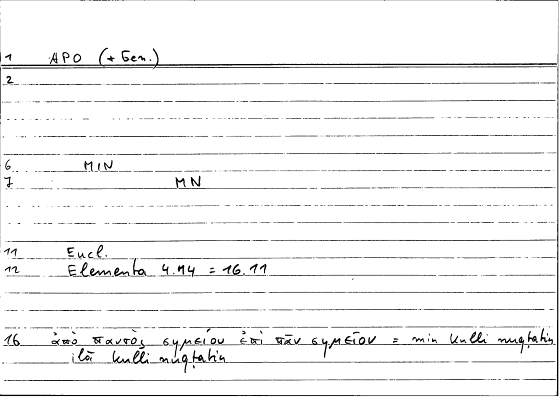 1 APO (+ Gen.)
2
6 MIN
7 MN
11 Eucl.
12 Elementa 4.M4 = 16.11
16 ἀπὸ παντὸς σημείου ἐπὶ πᾶν σημεῖον = min kulli nuqṭatin
ilā kulli nuqṭatin